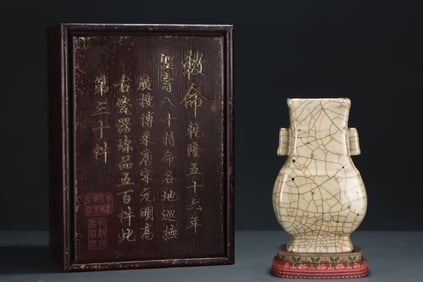 敕命乾隆五十六年
聖壽八十特命各地巡撫
廣搜博采唐宋元明高
古瓷器珍品五百件此
第三十件